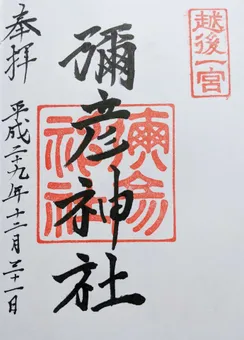 越後一宮
奉拝
彌彦神社
平成二十九年十二月三十一日